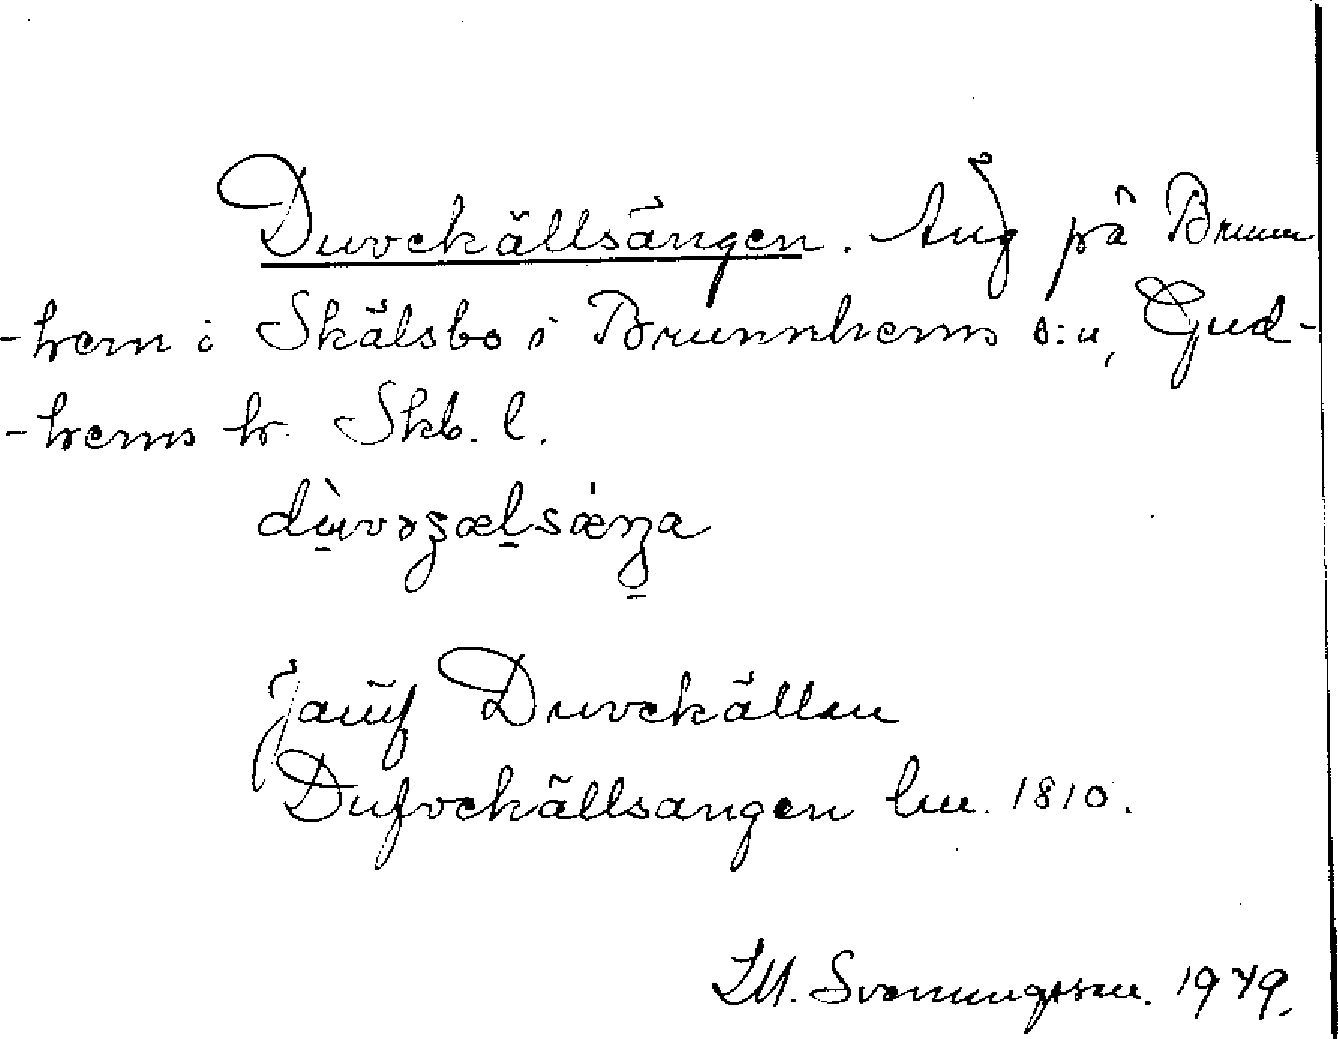 Duvekällsängen. Äng på Brunn-
-hem i Skålsbo i Brunnhems s:n, Gud-
-hems hr. Skb. l.
Jämf Duvekällan
Dufvekällsangen lm. 1810.
I.M. Svenungsson. 1949.